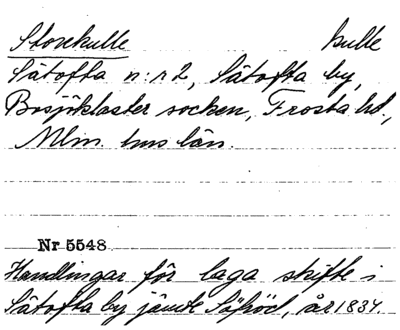 Storekulle kulle
Sätofta n:r 2, Sätofta by,
Bosjökloster socken, Frosta hd.,
Mlm. hus län.
Nr 5548
Handlingar för laga skifte i
Sätofta by jämte år 1834.